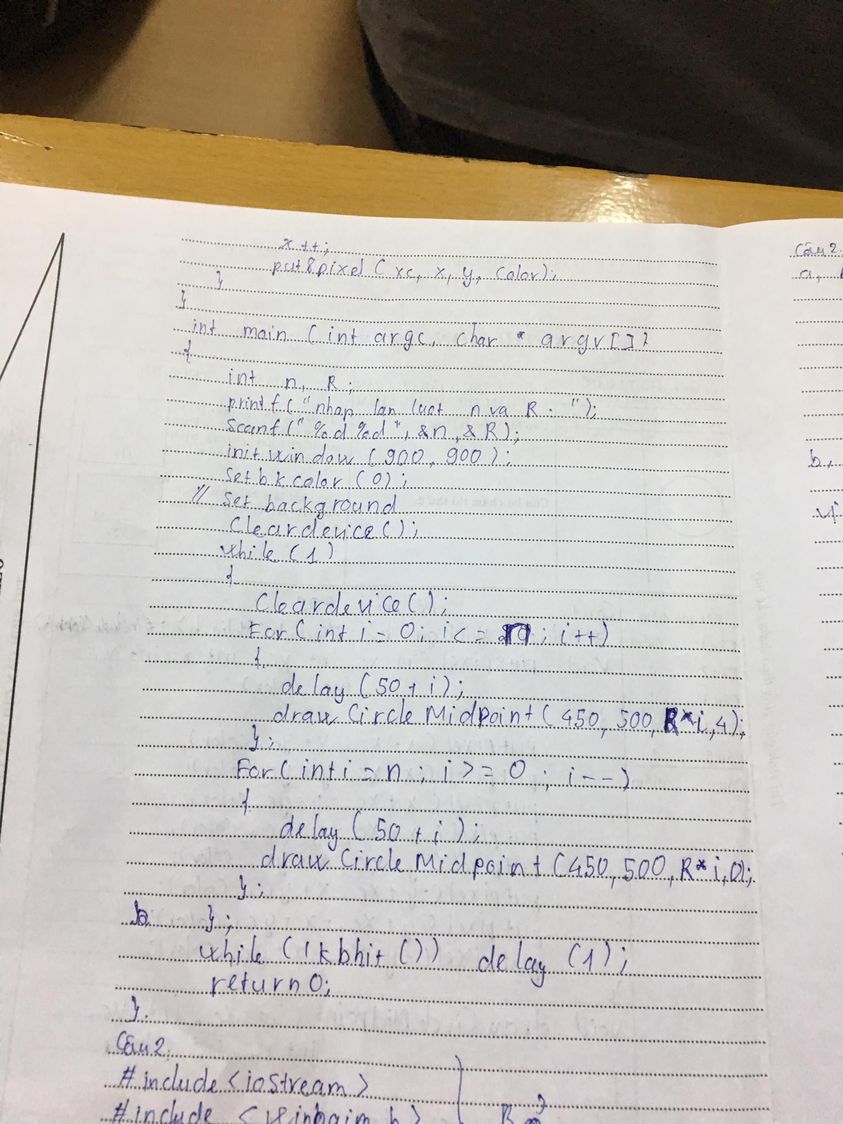 x++;
put8pixel (xc, x, y, Color);
}
}
int main (int argc, char * argv[])
{
int n, R;
printf("nhap lan luot n va R : ");
Scanf("%d%d", &n, &R);
initwindow (900, 900);
Setbkcolor (0);
// Set background
Cleardevice();
while (1)
{
Cleardevice();
For(int i = 0; i<= n; i++)
{
delay (50+i);
draw Circle MidPoint(450, 500, R*i,4);
};
For(int i = n ; i >= 0 ; i--)
{
delay (50+i);
draw Circle Midpoint (450, 500, R*i,0);
};
};
while (!kbhit ()) delay (1);
return 0;
}.
Câu 2.
#include <ioStream>
#include
Câu 2.
a,
b,